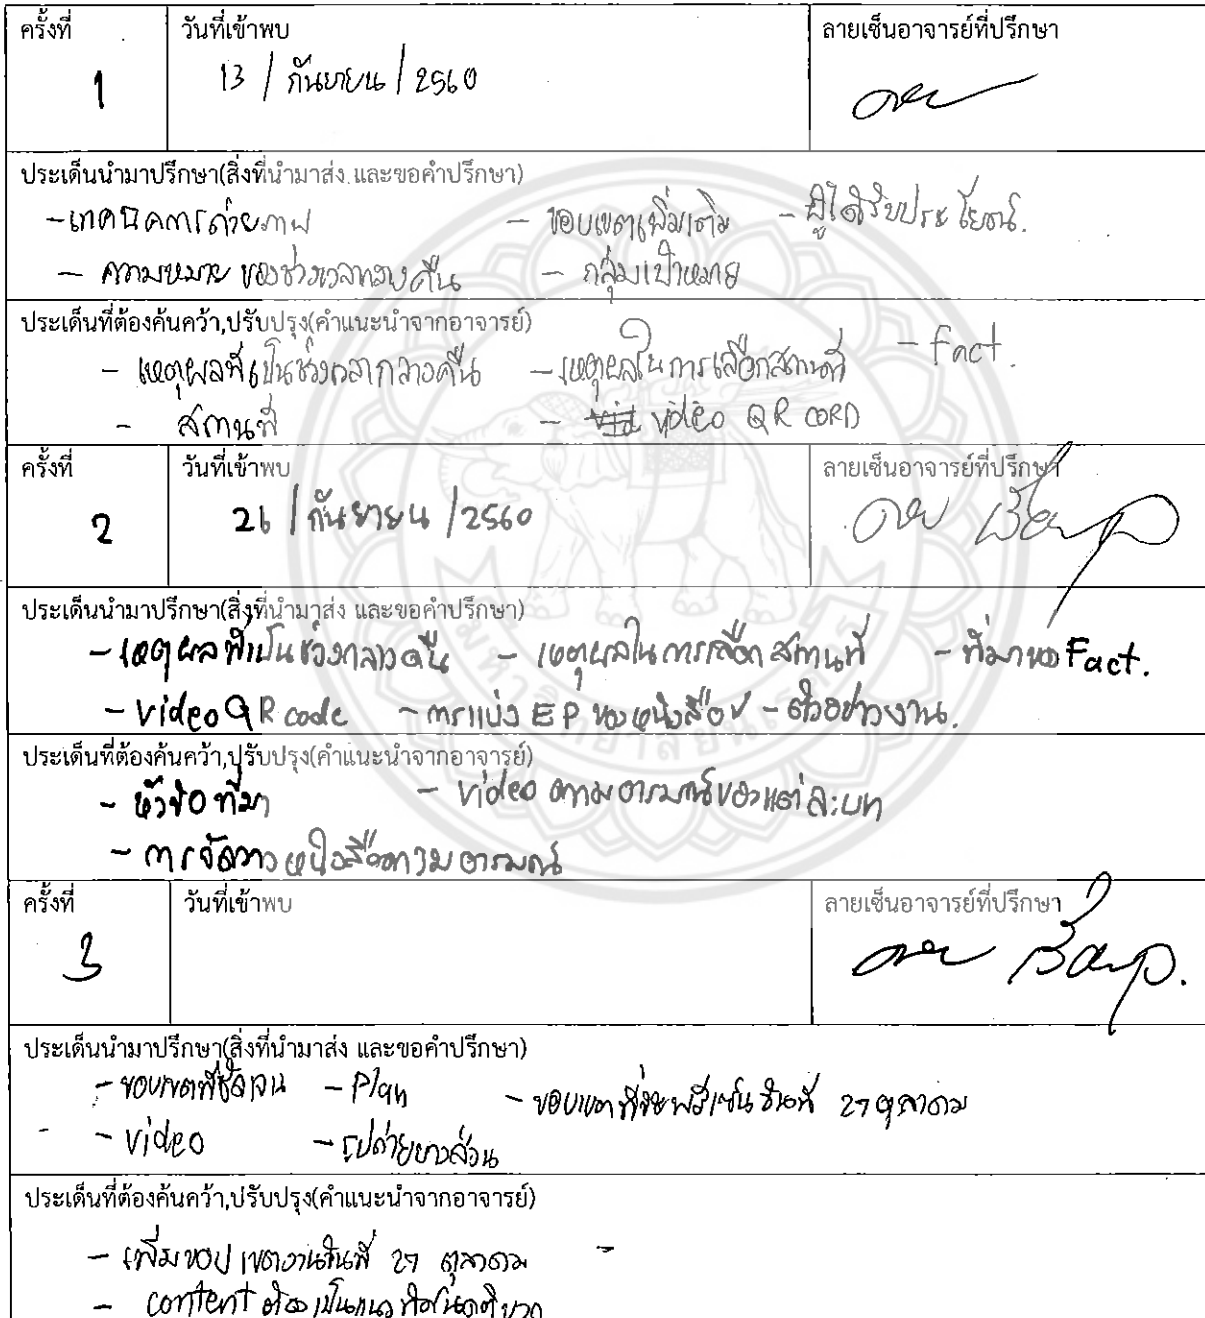 ครั้งที่ วันที่เข้าพบ ลายเซ็นอาจารย์ที่ปรึกษา
1 13 / กันยายน / 2560
ประเด็นนำมาปรึกษา(สิ่งที่นำมาส่ง และขอคำปรึกษา)
- เทคนิคการถ่ายภาพ - ขอบเขตเพิ่มเติม - ผู้ได้รับประโยชน์.
- ความหมาย ของช่วงเวลากลางคืน - กลุ่มเป้าหมาย
ประเด็นที่ต้องค้นคว้า,ปรับปรุง(คำแนะนำจากอาจารย์)
- เหตุผลที่เป็นช่วงเวลากลางคืน - เหตุผลในการเลือกสถานที่ - Fact.
- สถานที่ - video QR CORD
ครั้งที่ วันที่เข้าพบ ลายเซ็นอาจารย์ที่ปรึกษา
2 26 / กันยายน / 2560
ประเด็นนำมาปรึกษา(สิ่งที่นำมาส่ง และขอคำปรึกษา)
- เหตุผลที่เป็นช่วงกลางคืน - เหตุผลในการเลือก สถานที่ - ที่มาของ Fact.
- Video QR code - การแบ่ง EP ของหนังสือ - ตัวอย่างงาน.
ประเด็นที่ต้องค้นคว้า,ปรับปรุง(คำแนะนำจากอาจารย์)
- หัวข้อ ที่มา - video ตามอารมณ์ของแต่ละบท
- การจัดวาง หนังสือตามอารมณ์
ครั้งที่ วันที่เข้าพบ ลายเซ็นอาจารย์ที่ปรึกษา
3
ประเด็นนำมาปรึกษา(สิ่งที่นำมาส่ง และขอคำปรึกษา)
- ขอบเขตที่ชัดเจน - Plan - ขอบเขต ที่จะพรีเซ้น วันที่ 27 ตุลาคม
- video - รูปถ่ายบางส่วน
ประเด็นที่ต้องค้นคว้า,ปรับปรุง(คำแนะนำจากอาจารย์)
- เพิ่มขอบเขตงานวันที่ 27 ตุลาคม -
- content ต้องเป็นแนว
มหาวิทยาลัยนเรศวร